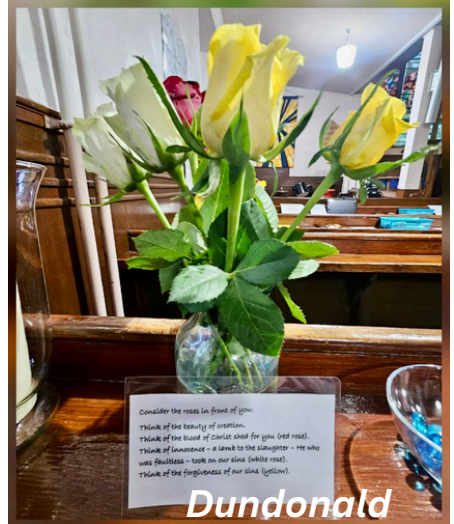 Consider the roses in front of you:
Think of the beauty of creation.
Think of the blood of Christ shed for you (red rose).
Think of innocence – a lamb to the slaughter – He who
was faultless – took on our sins (white rose).
Think of the forgiveness of our sins (yellow).
Dundonald